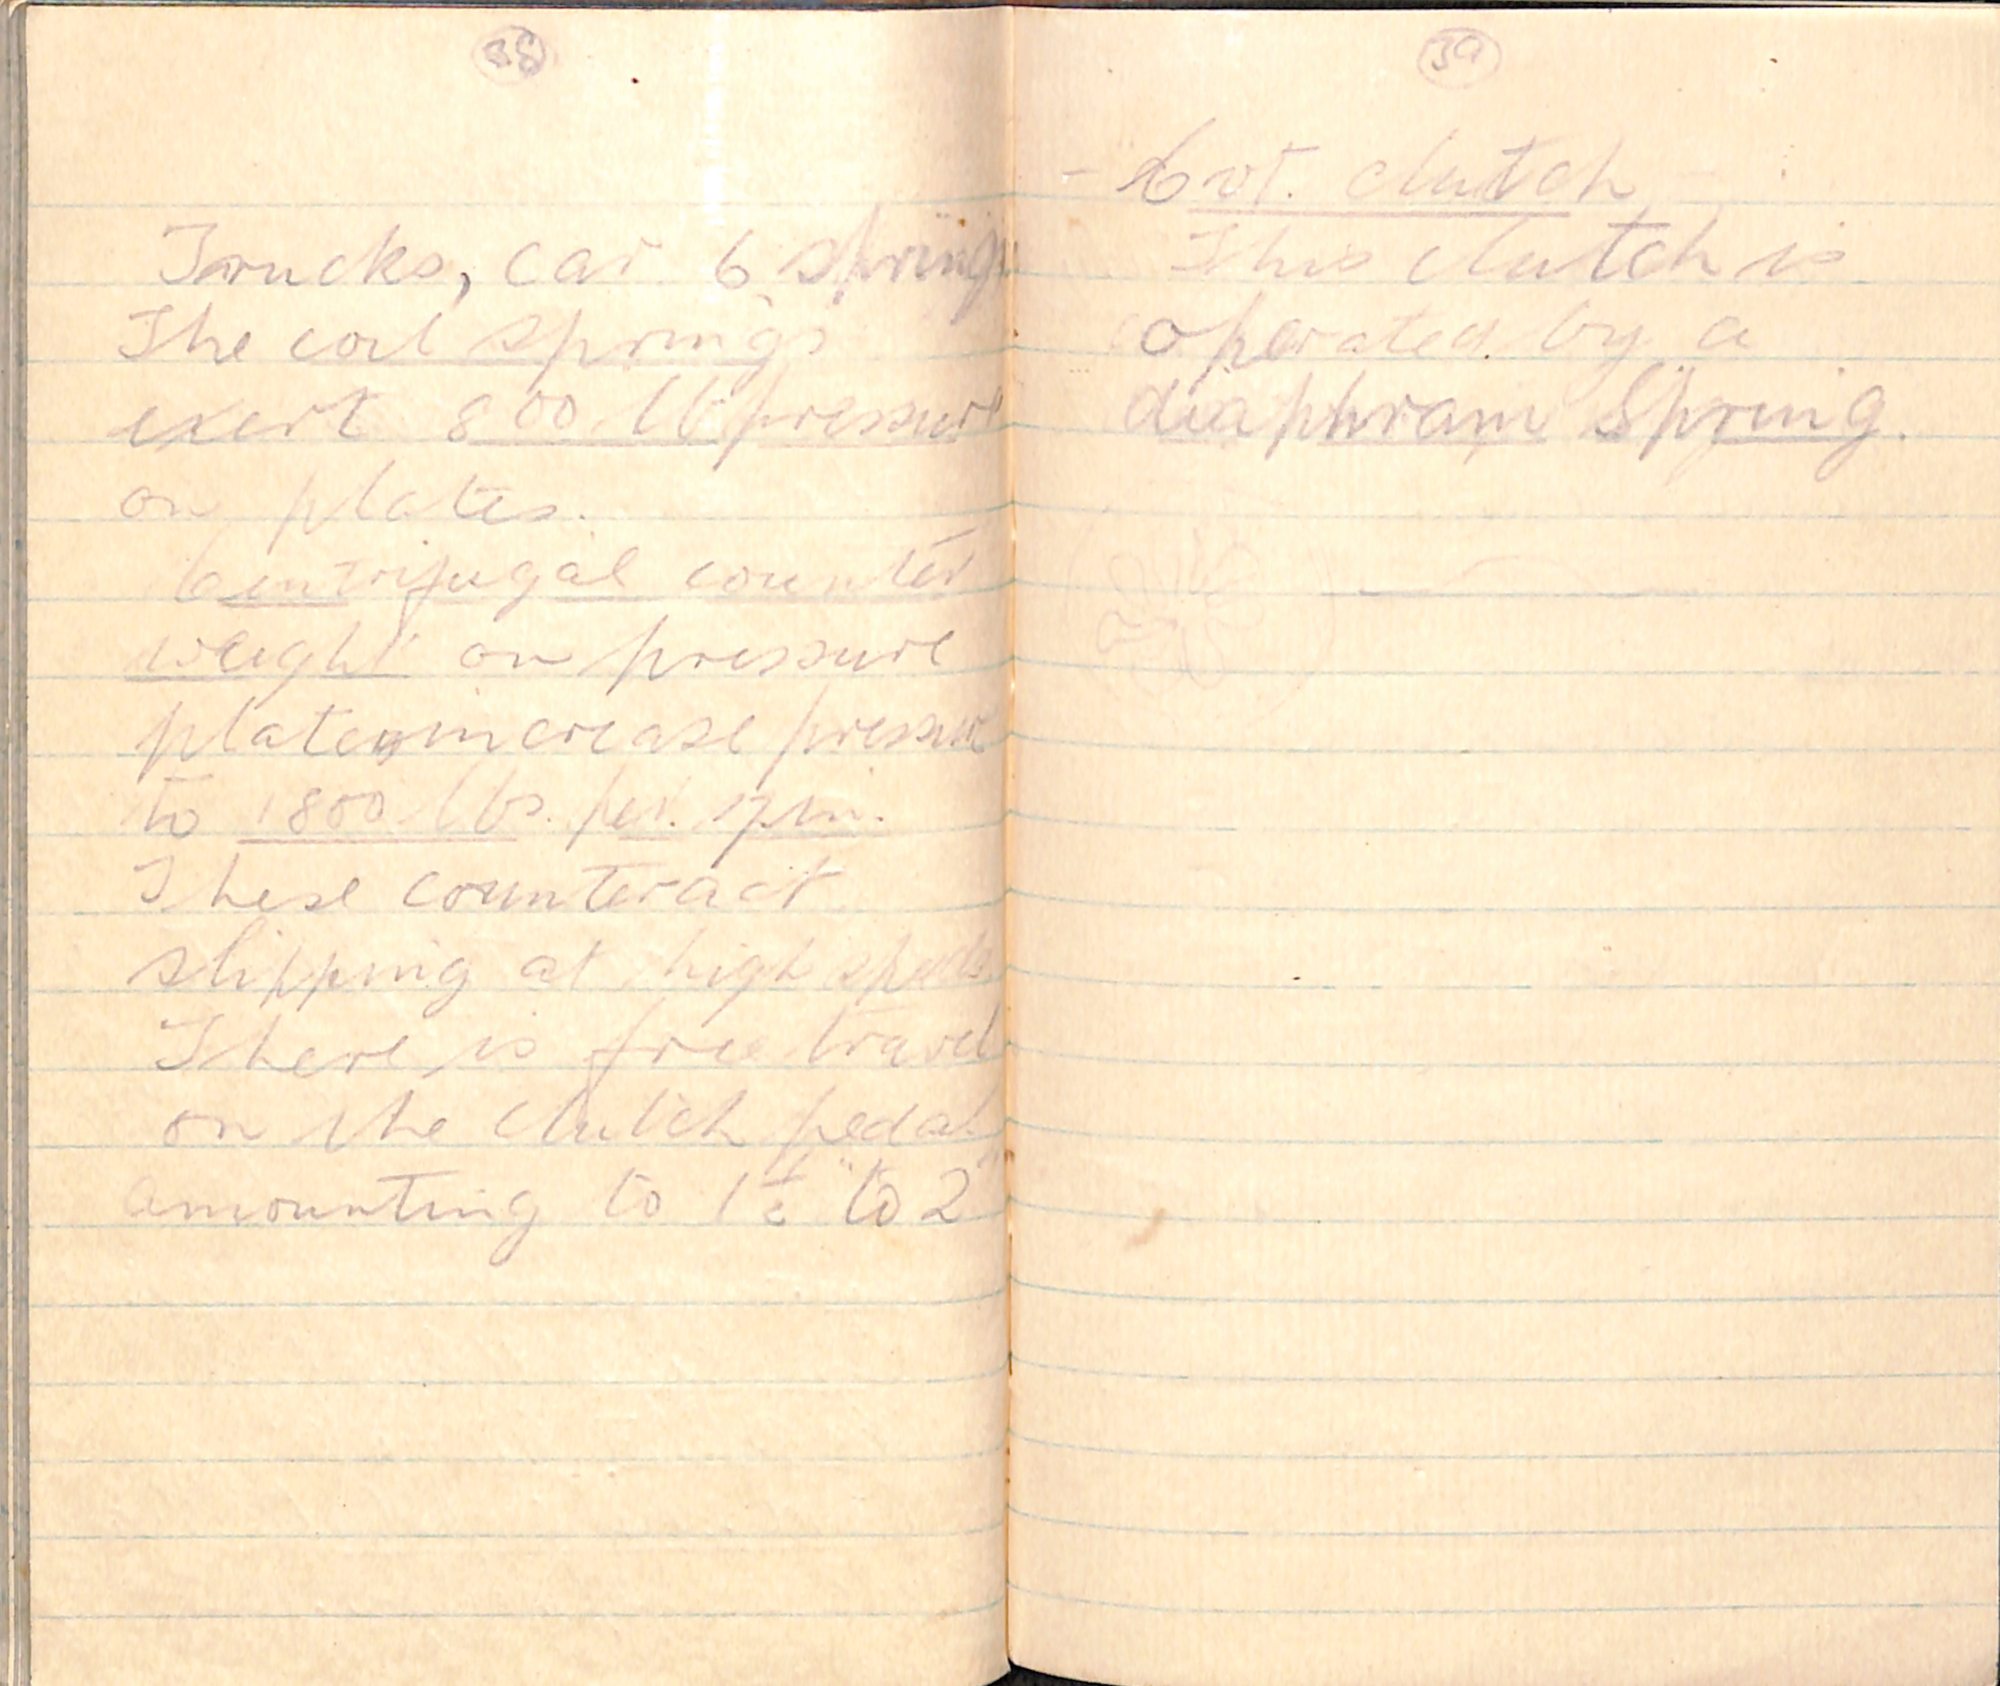 38
Trucks, car 6 springs
The coil springs
exert 800 lb pressure
on plates.
Centrifugal counter
weight on pressure
plates increase pressure
to 1800 lbs. per.
These counteract
slipping at high speeds
There is free travel
on the clutch pedal
amounting to 1½" to 2"
39
- Cvt. clutch -
This clutch is
operated by a
diaphram Spring.